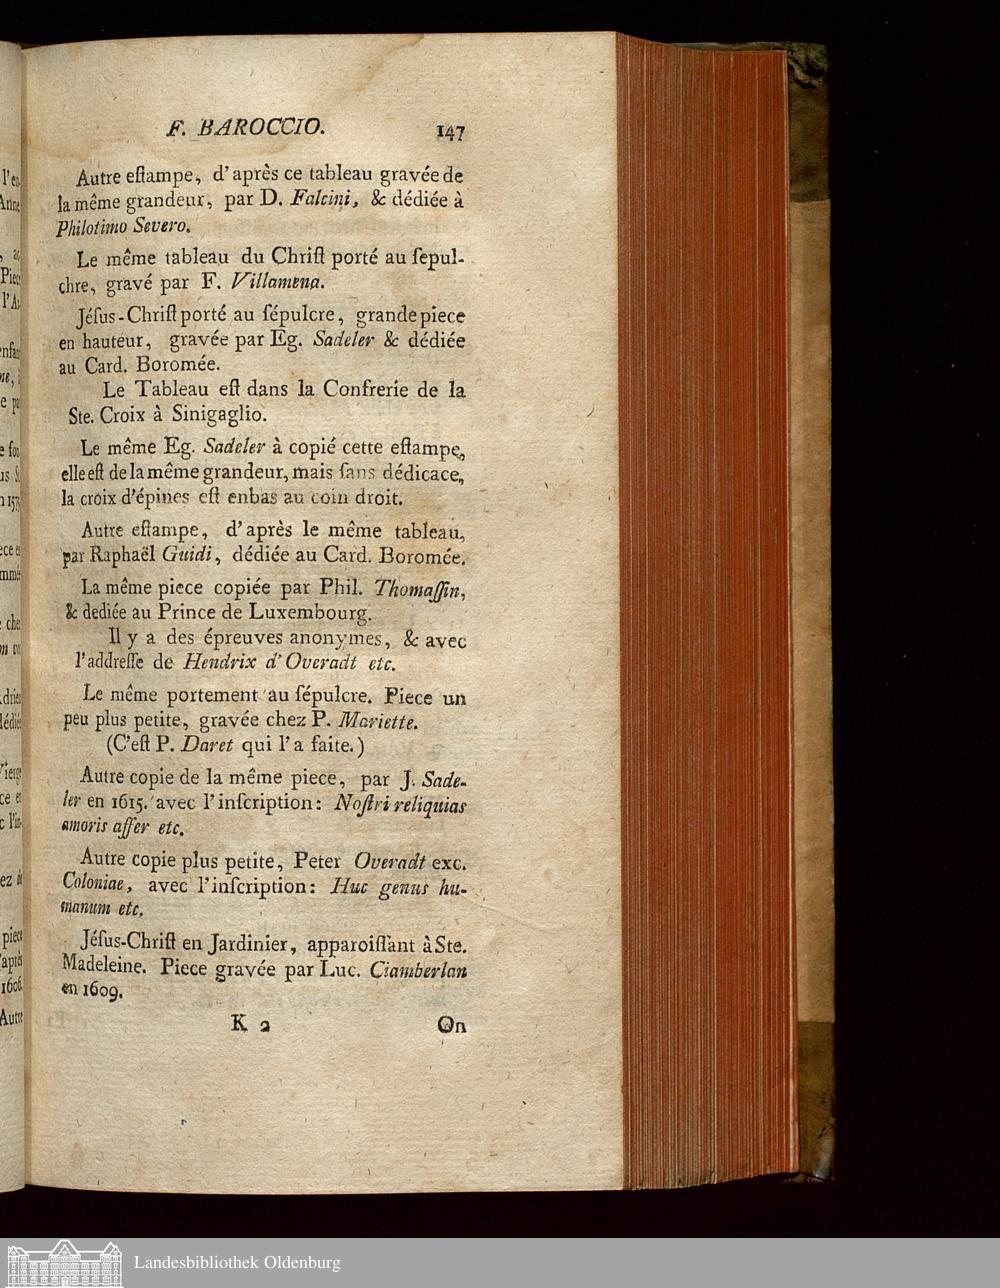 F. BAROCCIO. 147
Autre eſtampe, d'après ce tableau gravée de
la même grandeur, par D. Falcini, & dédiée à
Philotimo Severo.
Le même tableau du Chriſt porté au ſepul-
chre, gravé par F. Villamena.
Jéſus-Chriſt porté au ſépulcre, grande piece
en hauteur, gravée par Eg. Sadeler & dédiée
au Card. Boromée.
Le Tableau eſt dans la Confrerie de la
Ste. Croix à Sinigaglio.
Le même Eg. Sadeler à copié cette eſtampe,
elle eſt de la même grandeur, mais ſans dédicace,
la croix d'épines eſt enbas au coin droit.
Autre eſtampe, d'après le même tableau,
par Raphaël Guidi, dédiée au Card. Boromée.
La même piece copiée par Phil. Thomaſſin,
& dediée au Prince de Luxembourg.
Il y a des épreuves anonymes, & avec
l'addreſſe de Hendrix d'Overadt etc.
Le même portement au ſépulcre. Piece un
peu plus petite, gravée chez P. Mariette.
(C'eſt P. Daret qui l'a faite.)
Autre copie de la même piece, par J. Sade-
ler en 1615. avec l'inſcription: Noſtri reliquias
amoris aſſer etc.
Autre copie plus petite, Peter Overadt exc.
Coloniae, avec l'inſcription: Huc genus hu-
manum etc.
Jéſus-Chriſt en Jardinier, apparoiſſant à Ste.
Madeleine. Piece gravée par Luc. Ciamberlan
en 1609.
K 2 On
Landesbibliothek Oldenburg